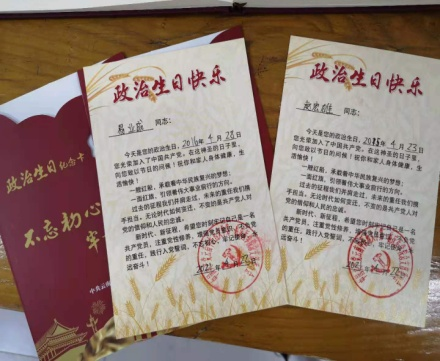 政治生日纪念卡
不忘初心
政治生日快乐
同志：
今天是您的政治生日，2016年4月28日
您光荣加入了中国共产党。在这神圣的日子里，
向您致以节日的问候！祝你和家人身体健康，生
活愉快！
一艘红船，承载着中华民族复兴的梦想；
一面红旗，引领着伟大事业前行的方向。
过去的征程我们并肩走过，未来的重任我们携
手担当。无论时代如何变迁，不变的是共产党人对
党的信仰和人民的忠诚。
新时代，新征程，希望您时刻牢记自己是一名
共产党员，注重党性修养，
的重任，践行入党誓词，不忘初心、牢记使命、
远奋斗！
政治生日快乐
同志：
今天是您的政治生日，年4月23日
您光荣加入了中国共产党。在这神圣的日子里，
向您致以节日的问候！祝你和家人身体健康，生
活愉快！
一艘红船，承载着中华民族复兴的梦想；
一面红旗，引领着伟大事业前行的方向。
过去的征程我们并肩走过，未来的重任我们携
手担当。无论时代如何变迁，不变的是共产党人对
党的信仰和人民的忠诚。
新时代，新征程，希望您时刻牢记自己是一名
共产党员，注重党性修养，
的重任，践行入党誓词，不忘初心、牢记使命
远奋斗！